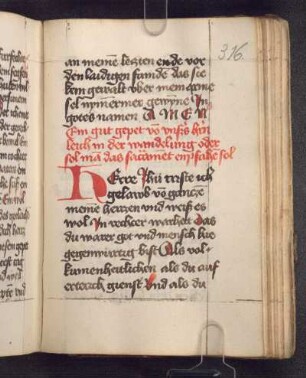 316
an meine leczten ende vor
den laidigen feinde das sie
kem gewalt vber mein arme
sel nymermer gewynne In
gotes namen A M E N
Ein gut gepet vō vnsers hern
leich in der wandelung oder
so mā das sacramēt empfahē sol
HErre Jhū criste ich
gelawb vō gancze
meine herczen vnd weiß es
wol In rechter warheit das
du warer got vnd mensch hie
gegenwürtig bist Als vol
kumenheitlichen als du auf
ertreich gienst vnd als du